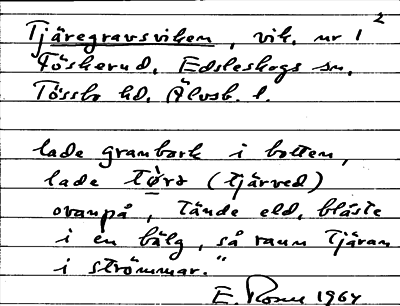 2
Tjäregravsviken, vik. nr 1
Töskerud, Edsleskogs sn,
Tössbo hd, Älvsb. l.
lade granbark i botten,
lade tørə (tjärved)
ovanpå, tände eld, blåste
i en bälg, så rann tjäran
i strömmar."
E. 1964